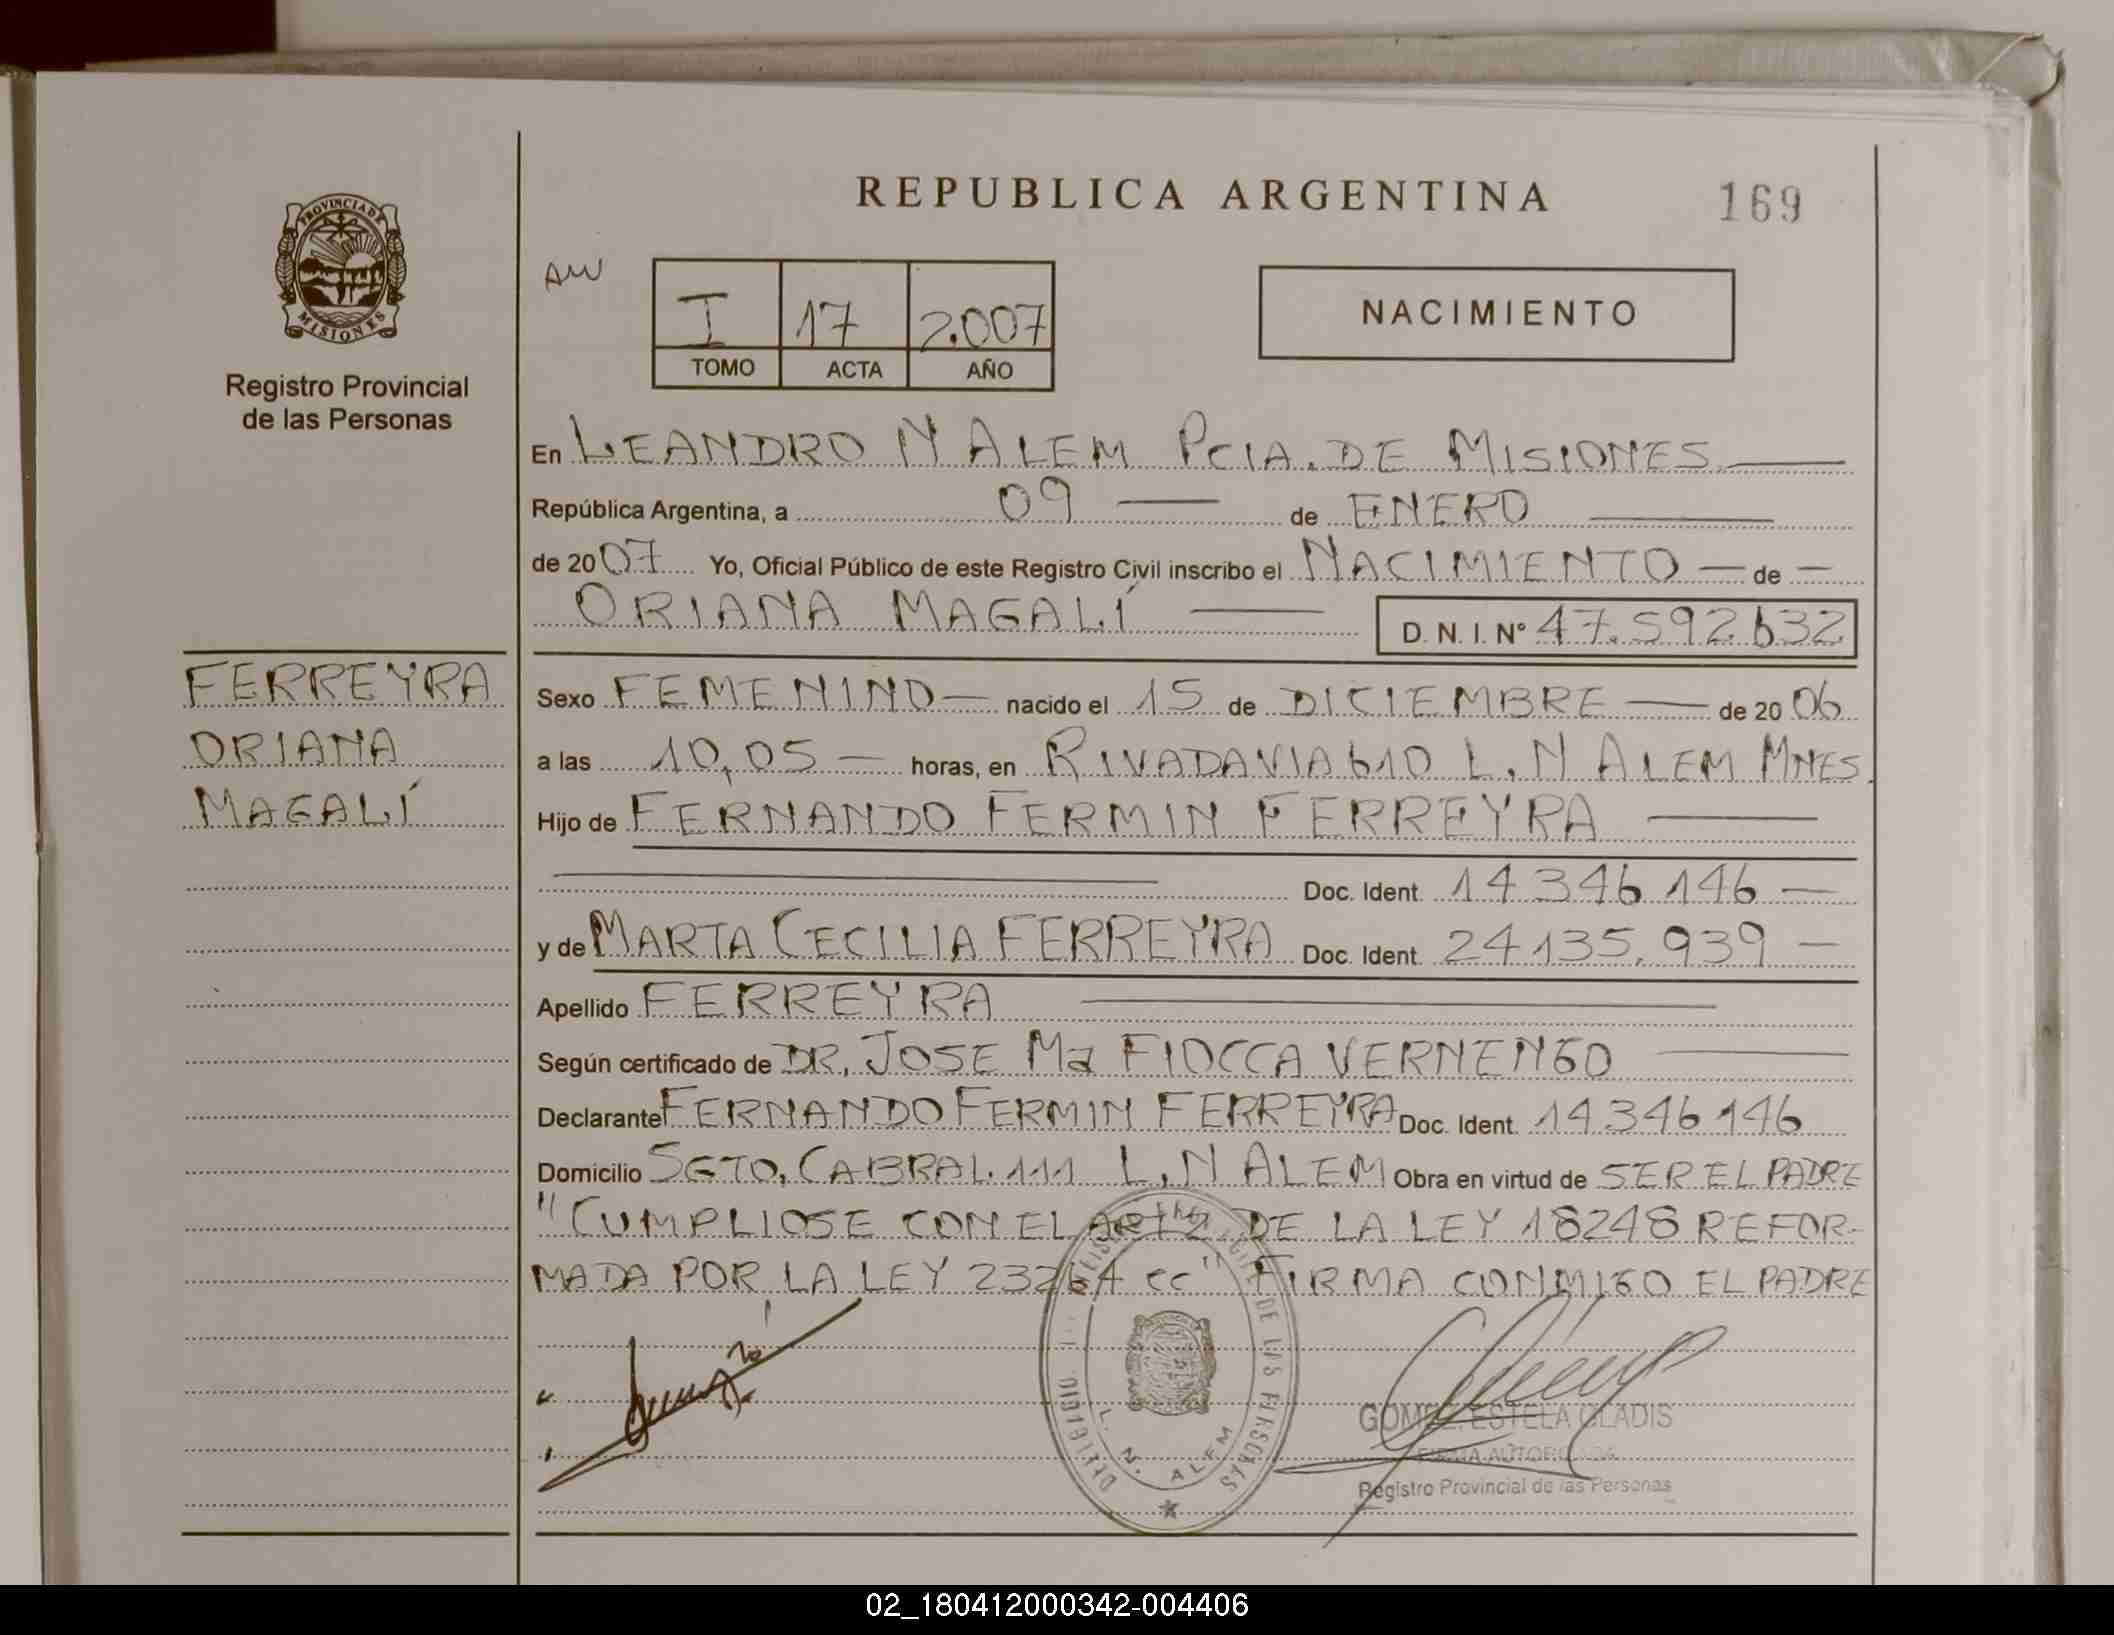 REPUBLICA ARGENTINA
169
PROVINCIA DE
MISIONES
Registro Provincial
de las Personas
AW
I 17 2.007
TOMO ACTA AÑO
NACIMIENTO
En LEANDRO N ALEM PCIA. DE MISIONES
República Argentina, a 09 de ENERO
de 2007 Yo, Oficial Público de este Registro Civil inscribo el NACIMIENTO de
ORIANA MAGALÍ D. N. I. Nº 47.592.632
FERREYRA
ORIANA
MAGALÍ
Sexo FEMENINO nacido el 15 de DICIEMBRE de 2006
a las 10,05 horas, en RIVADAVIA 610 L. N ALEM MNES.
Hijo de FERNANDO FERMIN FERREYRA
Doc. Ident. 14346146
y de MARTA CECILIA FERREYRA Doc. Ident. 24135.939
Apellido FERREYRA
Según certificado de DR. JOSE Ma FIOCCA VERNENGO
Declarante FERNANDO FERMIN FERREYRA Doc. Ident. 14346146
Domicilio SGTO. CABRAL 111 L. N ALEM Obra en virtud de SER EL PADRE
"CUMPLIOSE CON EL ART 2 DE LA LEY 18248 REFOR-
MADA POR LA LEY 23264 CC" FIRMA CONMIGO EL PADRE
DE LAS PERSONAS
L. N. ALEM
GOMEZ, ESTELA GLADIS
FIRMA AUTORIZADA
Registro Provincial de las Personas
02_180412000342-004406